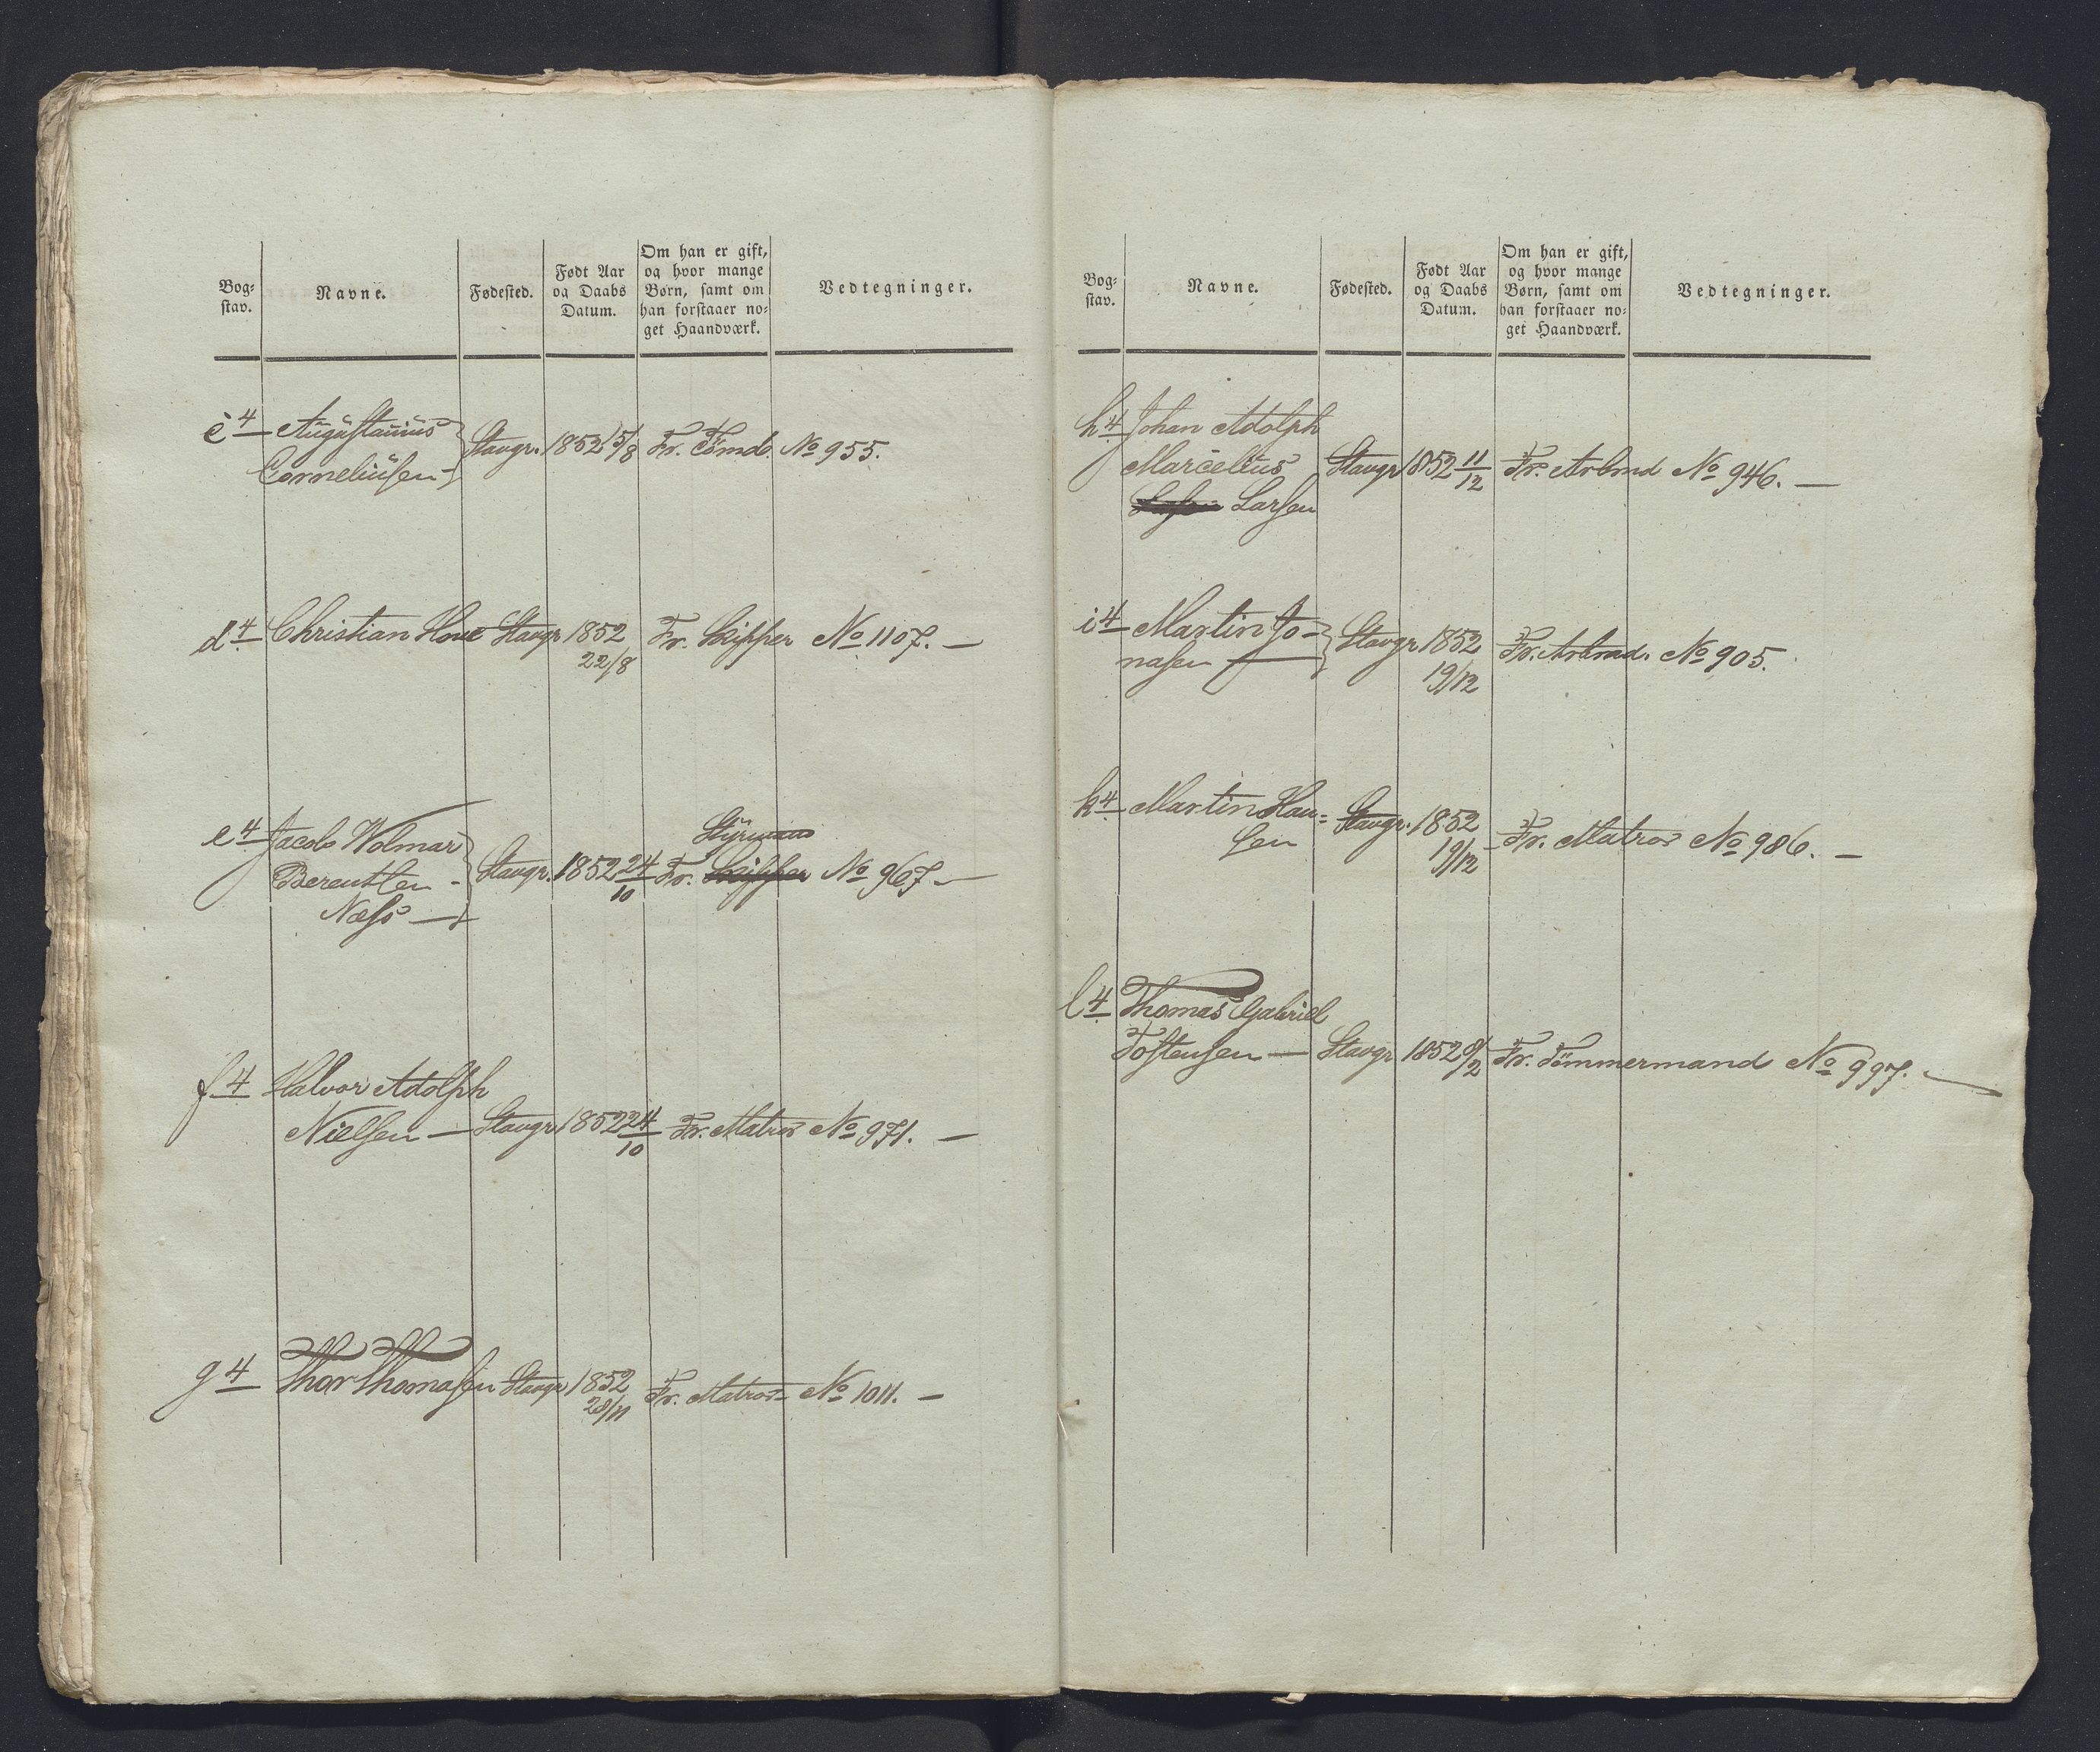 Bog-
stav.
Navne.
Fødested.
Født Aar
og Daabs
Datum.
Om han er gift,
og hvor mange
Børn, samt om
han forstaaer no-
get Haandværk.
Vedtegninger.
c 4 Augustanius
Corneliusen - Stavgr. 1852 15/8 Fr. Tömd. No 955.
d 4 Christian Houe Stavgr 1852 Fr. Skipper No 1107. —
22/8
Styrmand
e 4 Jacob Wolmar
Berentsen - Stavgr. 1852 24/10 Fr. Skipper No 967 —
Næss —
f 4 Halvor Adolph
Nielsen — Stavgr 1852 24/10 Fr. Matros No 971. —
g 4 Thor Thomasen Stavgr 1852 Fr. Matros - No 1011. —
28/11
Bog-
stav.
Navne.
Fødested.
Født Aar
og Daabs
Datum.
Om han er gift,
og hvor mange
Børn, samt om
han forstaaer no-
get Haandværk.
Vedtegninger.
h 4 Johan Adolph
Marcelius Stavgr 1852 11/12 Fr. Arbmd No 946. —
Larsen
i 4 Martin Jo- Stavgr 1852 Fr. Arbmd. No 905.
nasen — 19/12
k 4 Martin Han- Stavgr. 1852 Fr. Matros No 986. —
sen 19/12
l 4 Thomas Gabriel
Tostensen — Stavgr 1852 8/2 Fr. Tömmermand No 997. —